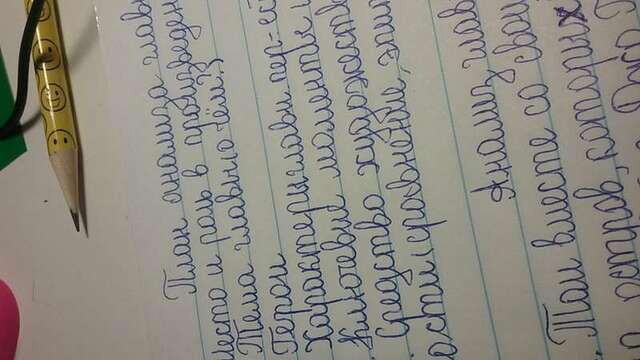 План анализа глав
место и роль в произведен
Тема главы (о чём?)
Герои
Характеры главн. пер-
Ключевые моменты
Средство художеств
ости (сравнение, эпи
Анализ глав
Том вместе со свои
остров, которых